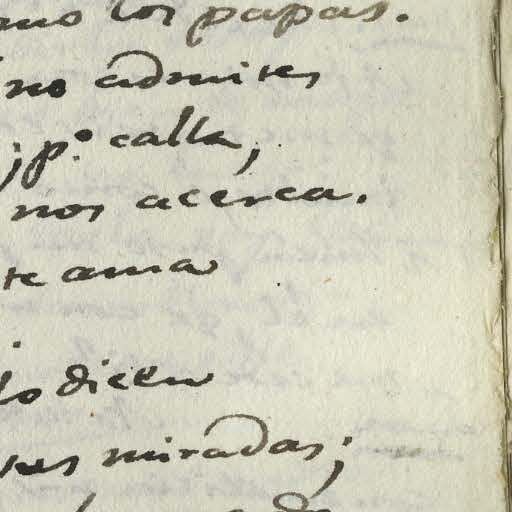 los papas.
no admites
; p.º calla,
nos acerca.
te ama
lo dicen
miradas;